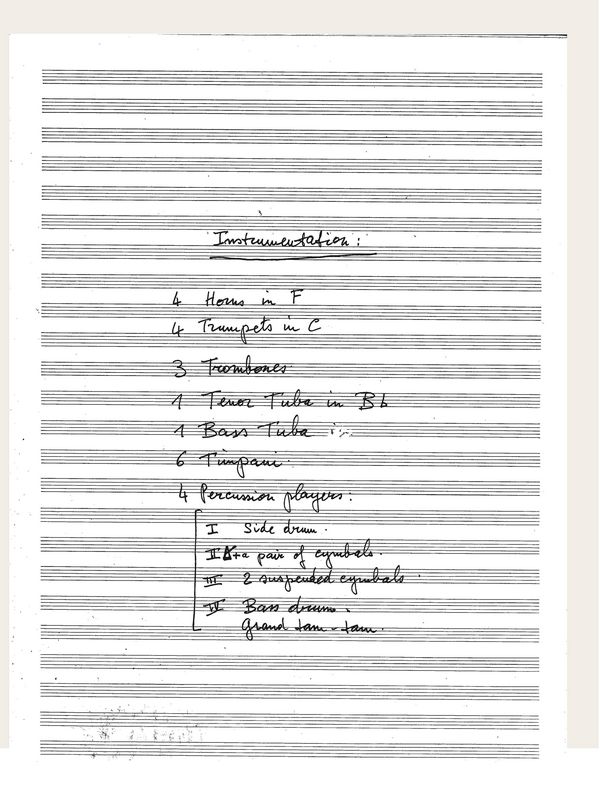 Instrumentation:
4 Horns in F
4 Trumpets in C
3 Trombones
1 Tenor Tuba in B♭
1 Bass Tuba
6 Timpani
4 Percussion players:
I Side drum.
II + a pair of cymbals.
III 2 suspended cymbals
IV Bass drum.
Grand tam-tam.